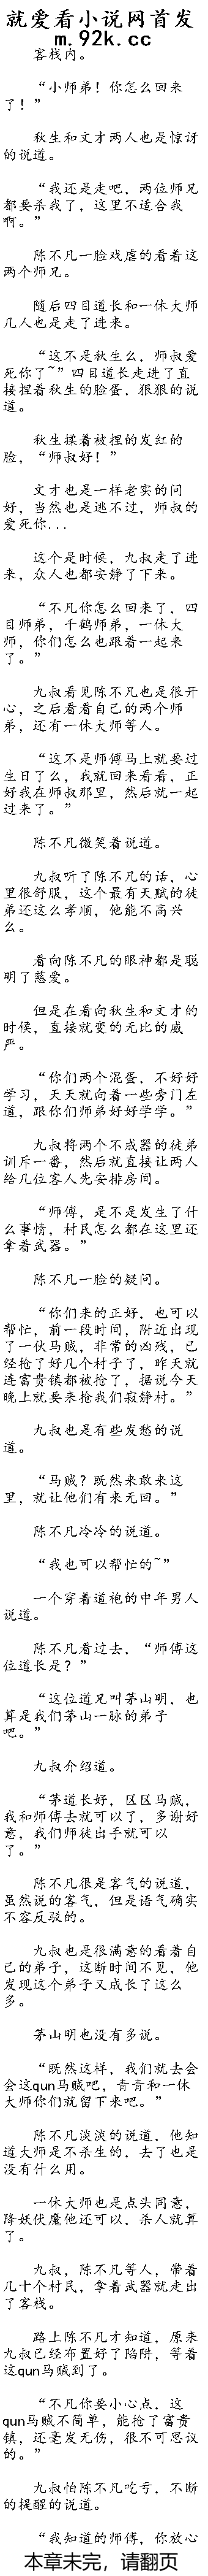 就爱看小说网首发
m.92k.cc
客栈内。
“小师弟！你怎么回来
了！”
秋生和文才两人也是惊讶
的说道。
“我还是走吧，两位师兄
都要杀我了，这里不适合我
啊。”
陈不凡一脸戏虐的看着这
两个师兄。
随后四目道长和一休大师
几人也是走了进来。
“这不是秋生么，师叔爱
死你了~”四目道长走进了直
接捏着秋生的脸蛋，狠狠的说
道。
秋生揉着被捏的发红的
脸，“师叔好！”
文才也是一样老实的问
好，当然也是逃不过，师叔的
爱死你...
这个是时候，九叔走了进
来，众人也都安静了下来。
“不凡你怎么回来了，四
目师弟，千鹤师弟，一休大
师，你们怎么也跟着一起来
了。”
九叔看见陈不凡也是很开
心，之后看看自己的两个师
弟，还有一休大师等人。
“这不是师傅马上就要过
生日了么，我就回来看看，正
好我在师叔那里，然后就一起
过来了。”
陈不凡微笑着说道。
九叔听了陈不凡的话，心
里很舒服，这个最有天赋的徒
弟还这么孝顺，他能不高兴
么。
看向陈不凡的眼神都是聪
明了慈爱。
但是在看向秋生和文才的
时候，直接就变的无比的威
严。
“你们两个混蛋，不好好
学习，天天就向着一些旁门左
道，跟你们师弟好好学学。”
九叔将两个不成器的徒弟
训斥一番，然后就直接让两人
给几位客人先安排房间。
“师傅，是不是发生了什
么事情，村民怎么都在这里还
拿着武器。”
陈不凡一脸的疑问。
“你们来的正好，也可以
帮忙，前一段时间，附近出现
了一伙马贼，非常的凶残，已
经抢了好几个村子了，昨天就
连富贵镇都被抢了，据说今天
晚上就要来抢我们寂静村。”
九叔也是有些发愁的说
道。
“马贼？既然来敢来这
里，就让他们有来无回。”
陈不凡冷冷的说道。
“我也可以帮忙的~”
一个穿着道袍的中年男人
说道。
陈不凡看过去，“师傅这
位道长是？”
“这位道兄叫茅山明，也
算是我们茅山一脉的弟子
吧。”
九叔介绍道。
“茅道长好，区区马贼，
我和师傅去就可以了，多谢好
意，我们师徒出手就可以
了。”
陈不凡很是客气的说道，
虽然说的客气，但是语气确实
不容反驳的。
九叔也是很满意的看着自
己的弟子，这断时间不见，他
发现这个弟子又成长了这么
多。
茅山明也没有多说。
“既然这样，我们就去会
会这qun马贼吧，青青和一休
大师你们就留下来吧。”
陈不凡淡淡的说道，他知
道大师是不杀生的，去了也是
没有什么用。
一休大师也是点头同意，
降妖伏魔他还可以，杀人就算
了。
九叔，陈不凡等人，带着
几十个村民，拿着武器就走出
了客栈。
路上陈不凡才知道，原来
九叔已经布置好了陷阱，等着
这qun马贼到了。
“不凡你要小心点，这
qun马贼不简单，能抢了富贵
镇，还毫发无伤，很不可思议
的。”
九叔怕陈不凡吃亏，不断
的提醒的说道。
“我知道的师傅，你放心
本章未完，请翻页